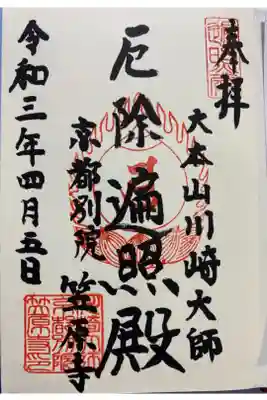 奉拝
大本山川崎大師
厄除遍照殿
京都別院 笠原寺
令和三年四月五日